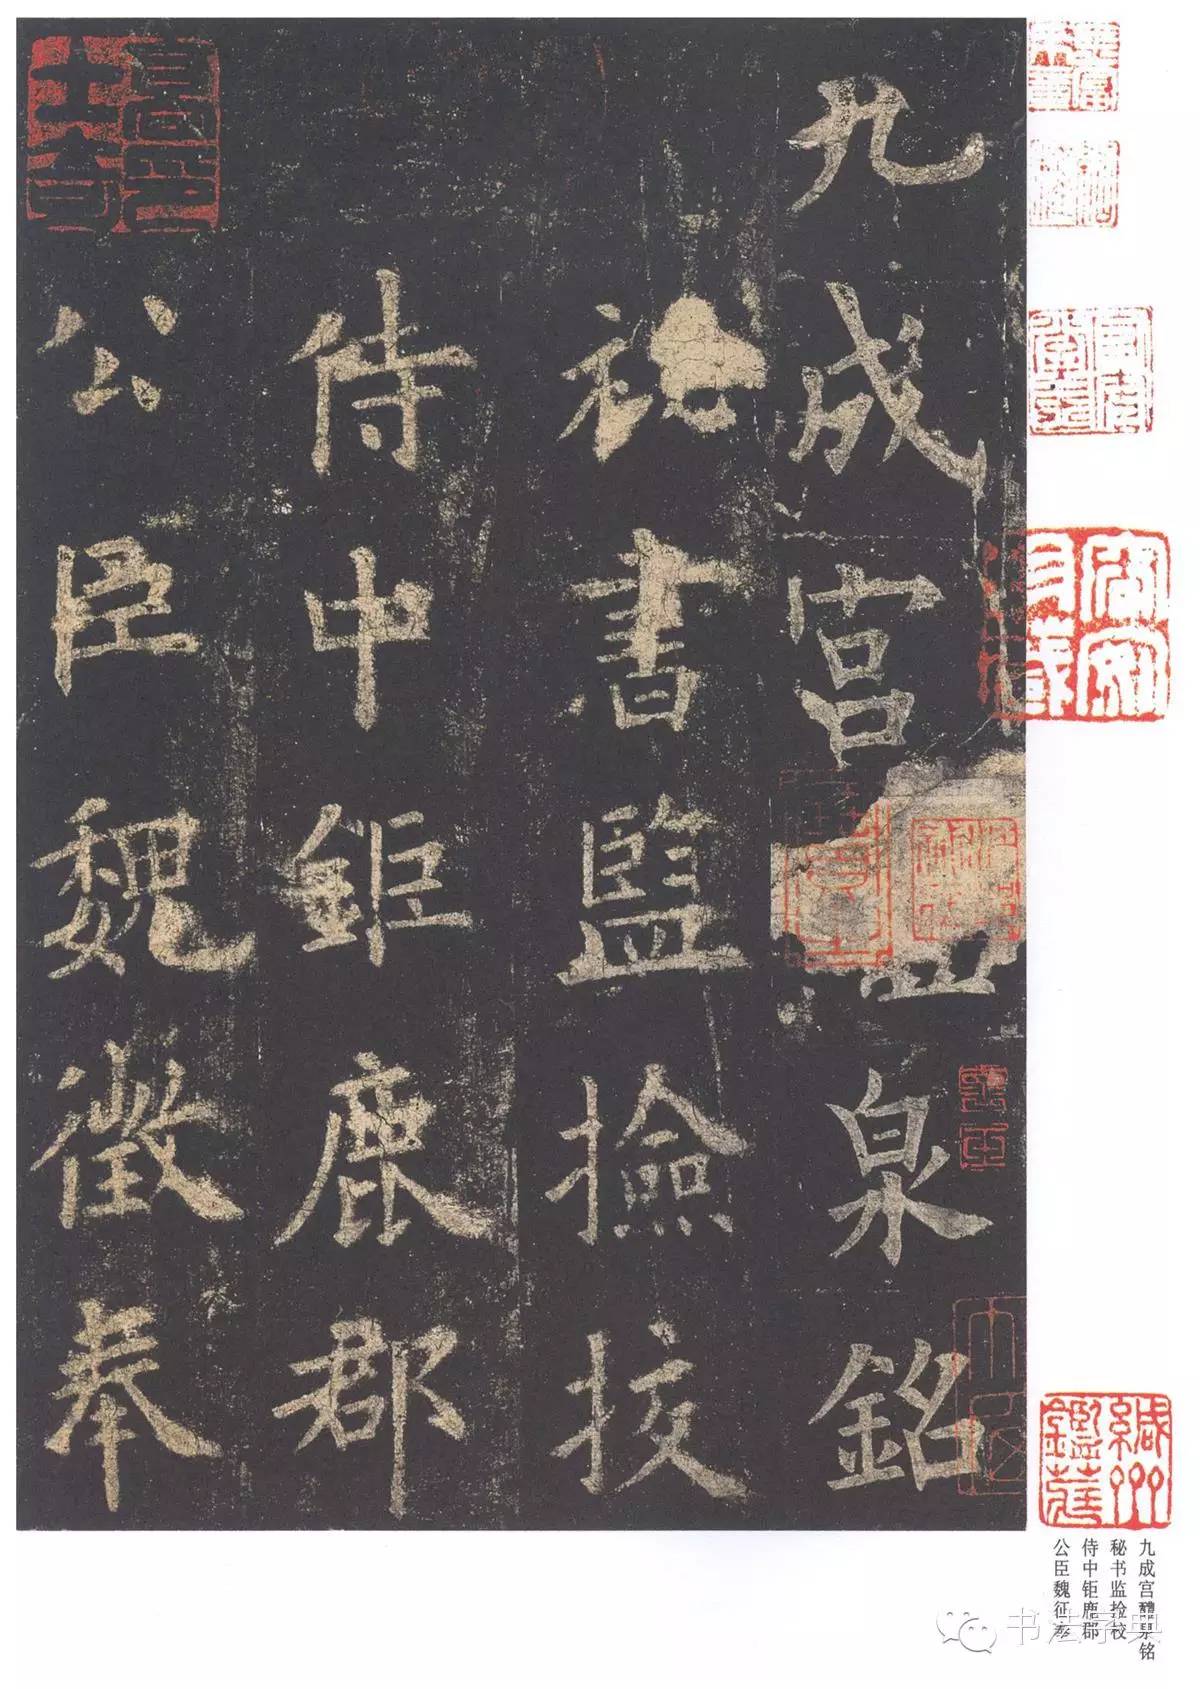 九成宮醴泉銘
祕書監撿挍
侍中鉅鹿郡
公臣魏徵奉
九成宫醴泉铭
秘书监捡校
侍中钜鹿郡
公臣魏征奉
书法字典